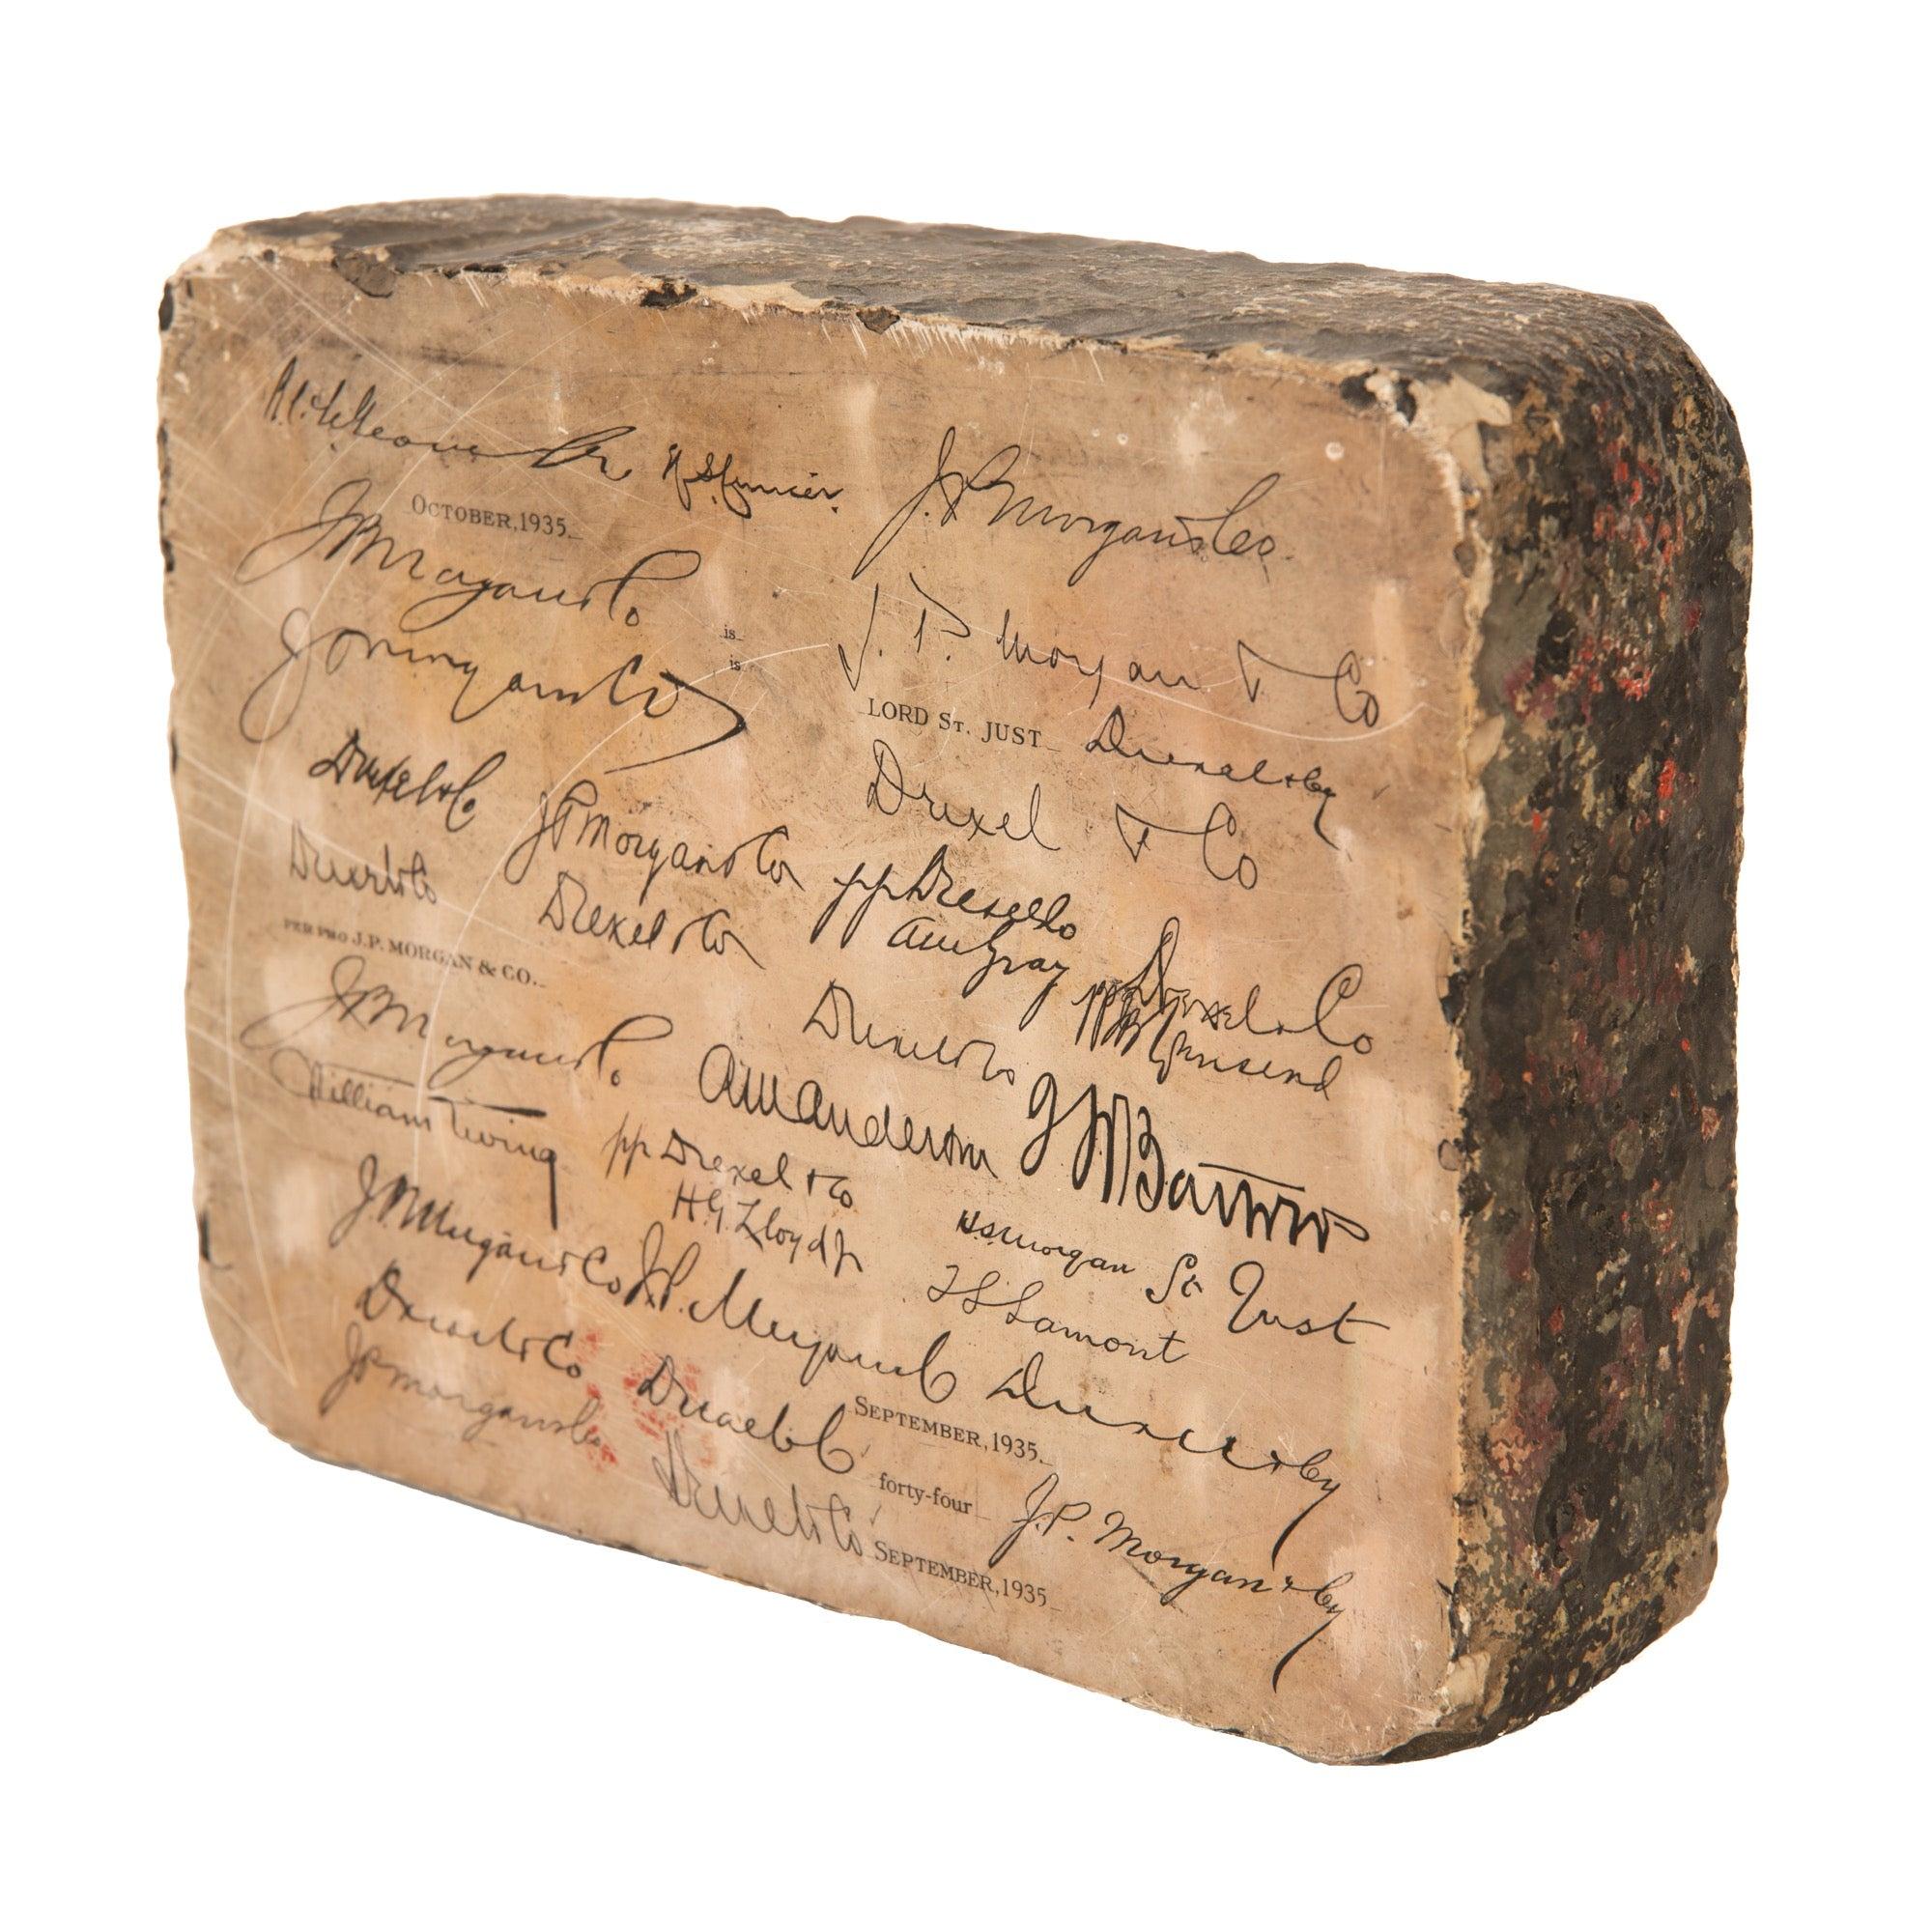 J. P. Morgan & Co.
OCTOBER, 1935.
J P Morgan & Co
is
is
J. P. Morgan & Co
J P Morgan & Co
LORD ST. JUST
Drexel & Co
Drexel & Co
Drexel & Co
J P Morgan & Co
Drexel & Co
Drexel & Co
pp Drexel & Co
AMGray
PER PRO J.P. MORGAN & CO.
Drexel & Co
pp
Townsend
J P Morgan & Co
Drexel & Co
AM Anderson
William Ewing
pp Drexel & Co
H.G. Lloyd Jr
HS Morgan
St Just
T S Lamont
J P Morgan & Co
J.P. Morgan & Co
Drexel & Co
Drexel & Co
J P Morgan & Co
Drexel & Co
SEPTEMBER, 1935.
forty-four
J. P. Morgan & Co
Drexel & Co
SEPTEMBER, 1935